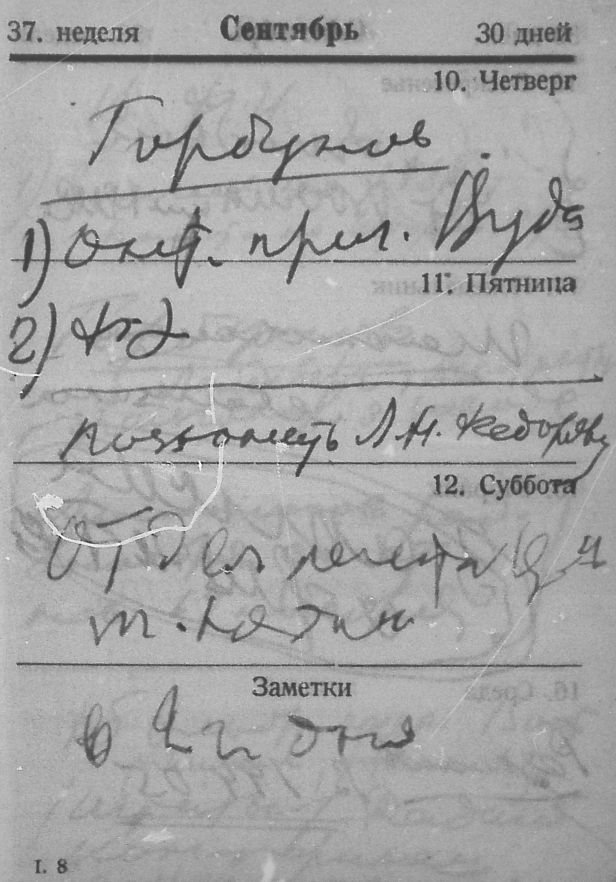 37. неделя Сентябрь 30 дней
10. Четверг
Горбунов
1) опт.приц. Вуда
11. Пятница
2)
позвонить Л.Н. Федорову
12. Суббота
отдел печати ЦК
т.
Заметки
в 2 ч дня
I. 8